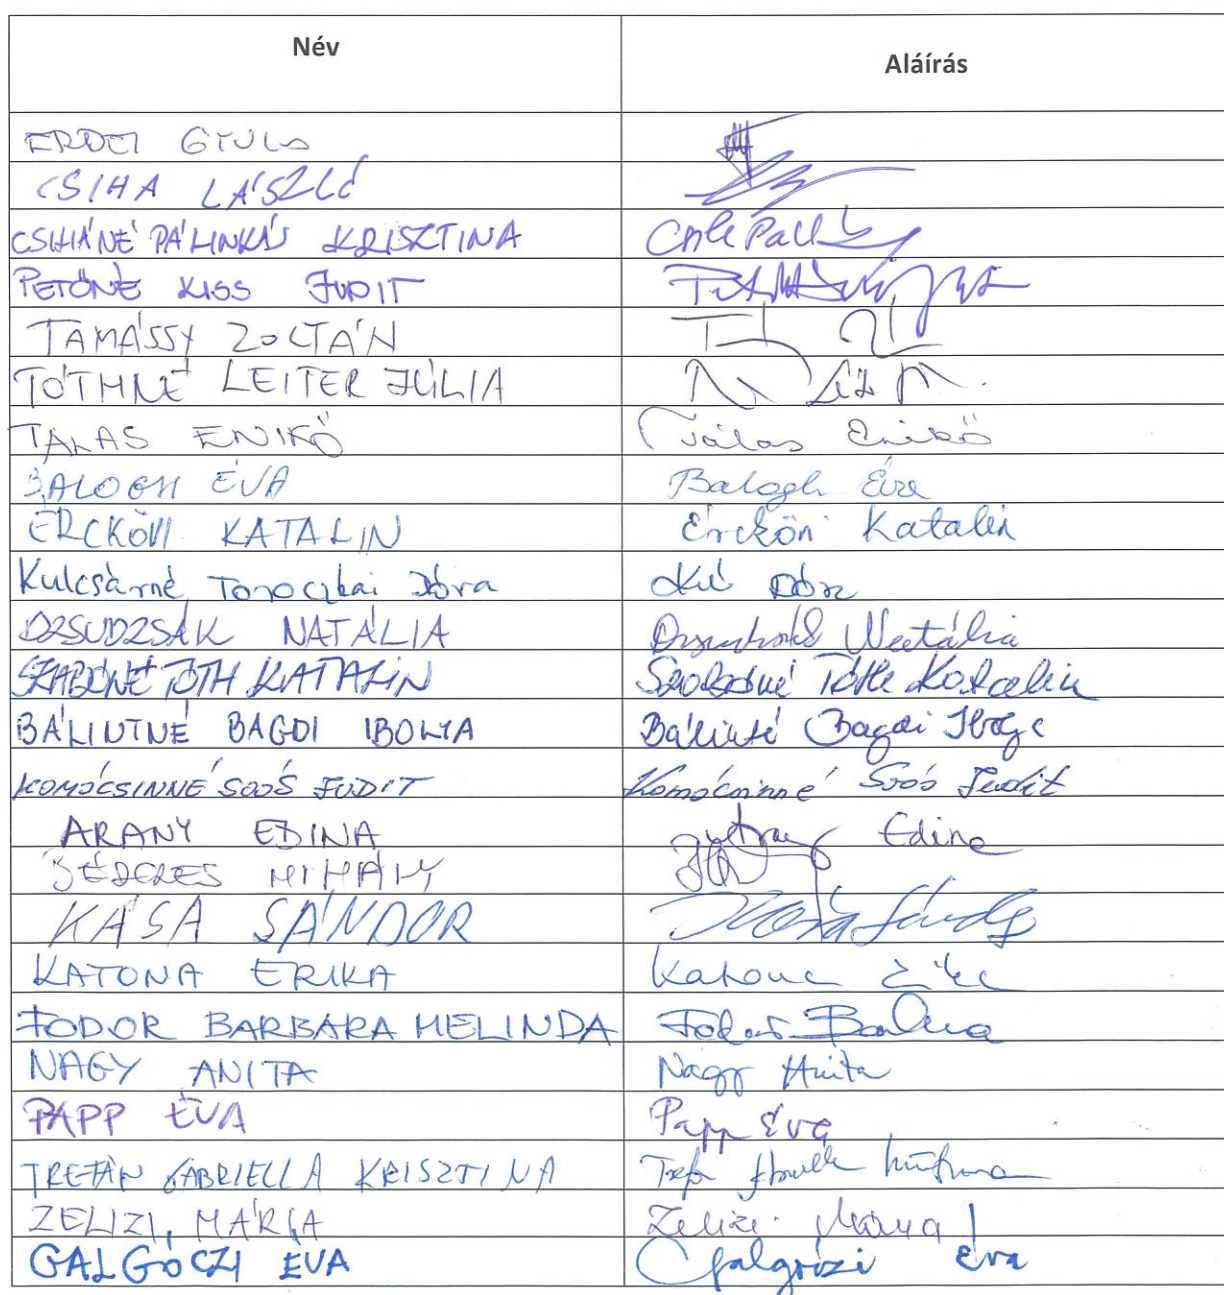 Név Aláírás
ERDEI GYULA
CSIHA LÁSZLÓ
CSIHÁNÉ PÁLINKÁS KRISZTINA
PETŐNÉ KISS JUDIT
TAMÁSSY ZOLTÁN
TÓTHNÉ LEITER JÚLIA
TÁLAS ENIKŐ Tálas Enikő
BALOGH ÉVA Balogh Éva
ÉRCKÖVI KATALIN Érckövi Katalin
Kulcsárné Toroczkai Dóra Dóra
DZSUDZSÁK NATÁLIA Natália
SZABÓNÉ TÓTH KATALIN Szabóné Tóth Katalin
BÁLINTNÉ BAGDI IBOLYA Bálintné Bagdi Ibolya
KOMÓCSINNÉ SOÓS JUDIT Komócsinné Soós Judit
ARANY EDINA Arany Edina
MIHÁLY
KÁSA SÁNDOR Kása Sándor
KATONA ERIKA Katona Erika
FODOR BARBARA MELINDA Fodor Barbara
NAGY ANITA Nagy Anita
PAPP ÉVA Papp Éva
GABRIELLA KRISZTINA
ZELIZI MÁRIA Zelizi Mária
GALGÓCZI ÉVA Galgóczi Éva